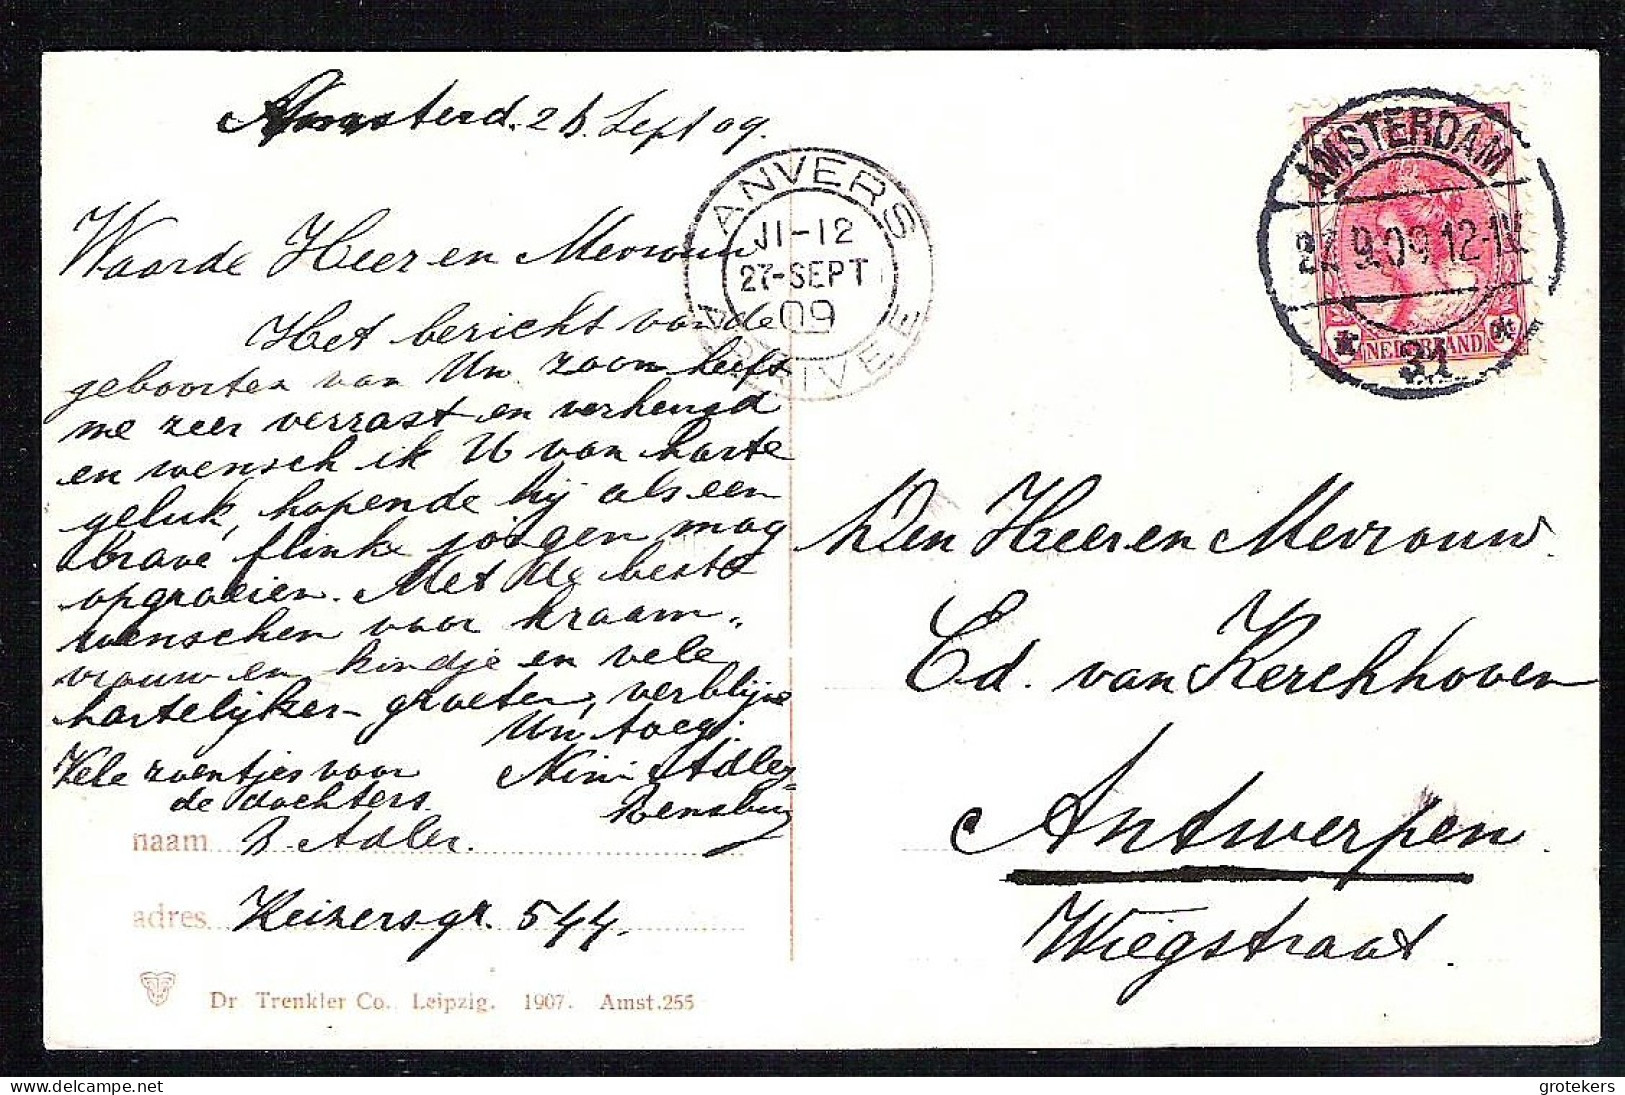 Amsterd. 26. Sept 09.
Waarde Heer en Mevrouw
Het bericht van de
geboorten van Uw zoon heeft
me zeer verrast en verheugd
en wensch ik U van harte
geluk, hopende hij als een
brave flinke jongen mag
opgroeien. Met de beste
wenschen voor kraam-
vrouw en kindje en vele
hartelijker groeten, verblijve
Uw toeg.
Vele zoentjes voor
de dochters.
Mimi Adler
Rensburg
naam B. Adler.
adres Keizersgr. 544.
Dr Trenkler Co., Leipzig. 1907. Amst.255
ANVERS
11-12
27-SEPT
09
ARRIVEE
AMSTERDAM
9.09 12-1N
31
NEDERLAND
Den Heer en Mevrouw
Ed. van Kerckhoven
Antwerpen.
Wiegstraat.
grotekers